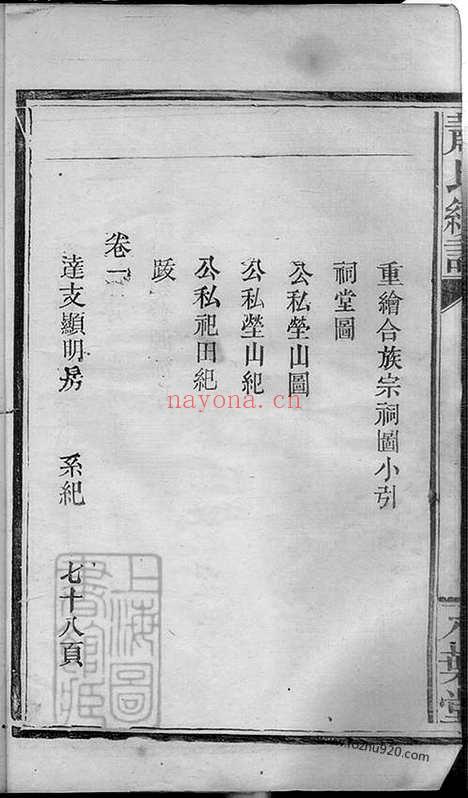 重繪合族宗祠圖小引
祠堂圖
公私塋山圖
公私塋山紀
公私祀田紀
跋
卷一
達支顯明房 系紀 七十八頁
上海圖書館藏
nayona.cn
www.fozhu920.com